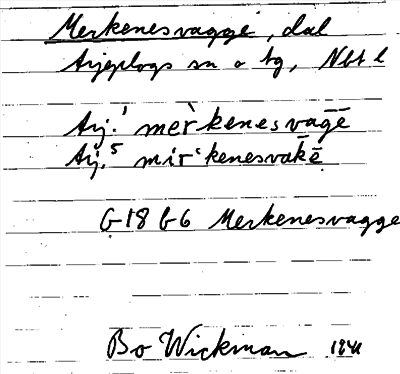 Merkenesvagge, dal
Arjeplogs sn o tg, Nbt l
Arj.¹ mèrkenesvāḡē
Arj.⁵ mirʿkenesvak̄ẹ̄
G18 b6 Merkenesvagge
Bo Wickman